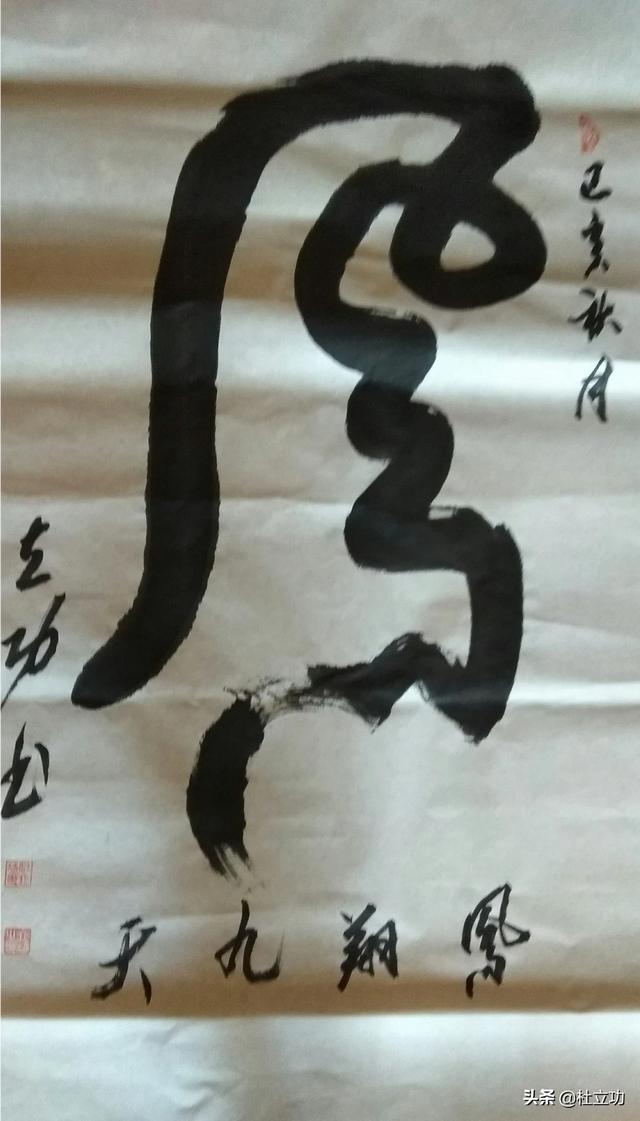 己亥秋月
鳳
鳳翔九天
立功书
头条 @杜立功